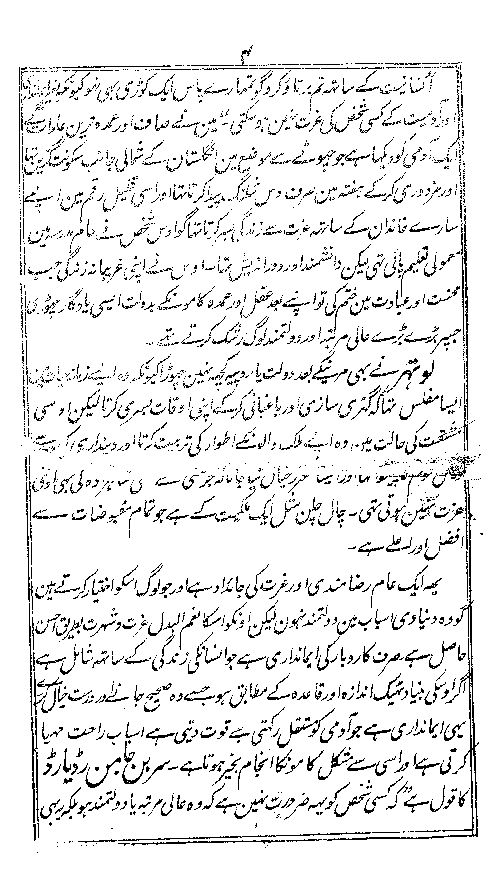 ۳
انسانیت کے ساتھہ تم برتاؤ کرو گو تمہارے پاس ایک کوڑی بہی نہو کیونکہ
اور کے کسی شخص کی عزت نہین ہوسکتی مین نے صاف اور عمدہ ترین
ایک آدمی کو دیکہا ہے جو چہوٹے سے موضع مین انگلستان کے شمالی جانب سکونت گزین تہا
اور مزدوری کرکے ہفتہ مین صرف دس شلنگ پیدا کرتا تہا اور اسی قلیل رقم مین اپنے
سارے خاندان کے ساتھہ عزت سے زندگی بسر کرتا تہا گو اوس شخص نے عام مدرسہ مین
معمولی تعلیم پائی تہی لیکن دانشمند اور دور اندیش تہا۔ اوس نے اپنی غریبانہ زندگی جب
محنت اور عبادت مین ختم کی تو اپنے بعد عقل اور عمدہ کامونکے بدولت ایسی یادگار چہوڑی
جسپر بڑے بڑے عالی مرتبہ اور دولتمند لوگ رشک کرتے تہے۔
لوتھر نے بہی مرنیکے بعد دولت یا روپیہ کچہہ نہین چہوڑا کیونکہ وہ اپنے زمانہ
ایسا مفلس تہا کہ گہڑی سازی اور باغبانی کرکے اپنی اوقات بسری کرتا لیکن اوسی
مشقت کی حالت مین وہ اپنے ملک والونکے اطوار کی تربیت کرتا اور دینداری
خیال کیا جاتا تہا کہ جرمنی کے کسی شاہزادہ کی بہی اوتنی
عزت نہین ہوتی تہی۔ چال چلن مثل ایک ملکیت کے ہے جو تمام مقبوضات سے
افضل اور اعلے ہے۔
یہہ ایک عام رضامندی اور عزت کی جائداد ہے اور جو لوگ اسکو اختیار کرتے ہین
گو وہ دنیاوی اسباب مین دولتمند نہون لیکن اونکو اسکا نعم البدل عزت و شہرت بطریق احسن
حاصل ہے صرف کاروبار کی ایمانداری ہے جو انسانکی زندگی کے ساتھہ شامل ہے
اگر اوسکی بنیاد ٹہیک اندازہ اور قاعدہ کے مطابق ہو جسے وہ صحیح جانے اور درست خیال کرے
یہی ایمانداری ہے جو آدمی کو مستقل رکہتی ہے قوت دیتی ہے اسباب راحت مہیا
کرتی ہے اور اسی سے مشکل کامونکا انجام بخیر ہوتا ہے۔ سر بن جامن رڈیارڈ
کا قول ہے کہ کسی شخص کو یہہ ضرورت نہین ہے کہ وہ عالی مرتبہ یا دولتمند ہو بلکہ یہی